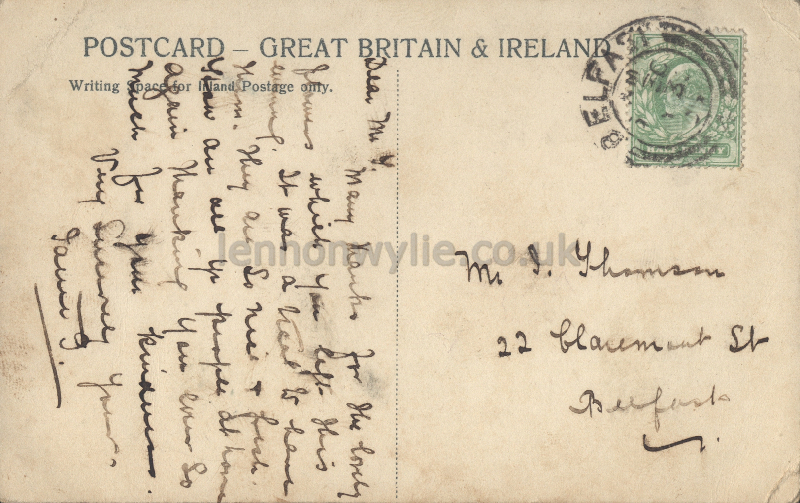 POSTCARD – GREAT BRITAIN & IRELAND
Writing Space for Inland Postage only.
BELFAST
Dear Mr T.
Many thanks for the lovely
flowers which you left this
evening. It was a treat to have
them. They are so nice & fresh.
Hope you are all
people at home
again thanking you ever so
much for your kindness.
Very Sincerely Yours,
J.
Mr J. Thomson
22 Claremont St
Belfast
lennonwylie.co.uk